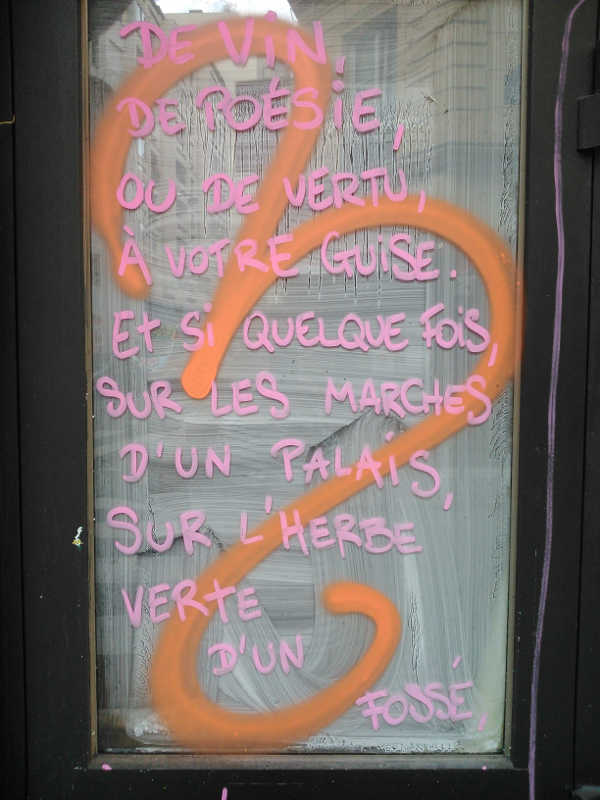 DE VIN,
DE POÉSIE,
OU DE VERTU,
À VOTRE GUISE.
Et Si QUELQUE FOIS,
SUR LES MARCHES
D'UN PALAIS,
SUR L'HERBE
VERTE
D'UN
FOSSÉ,